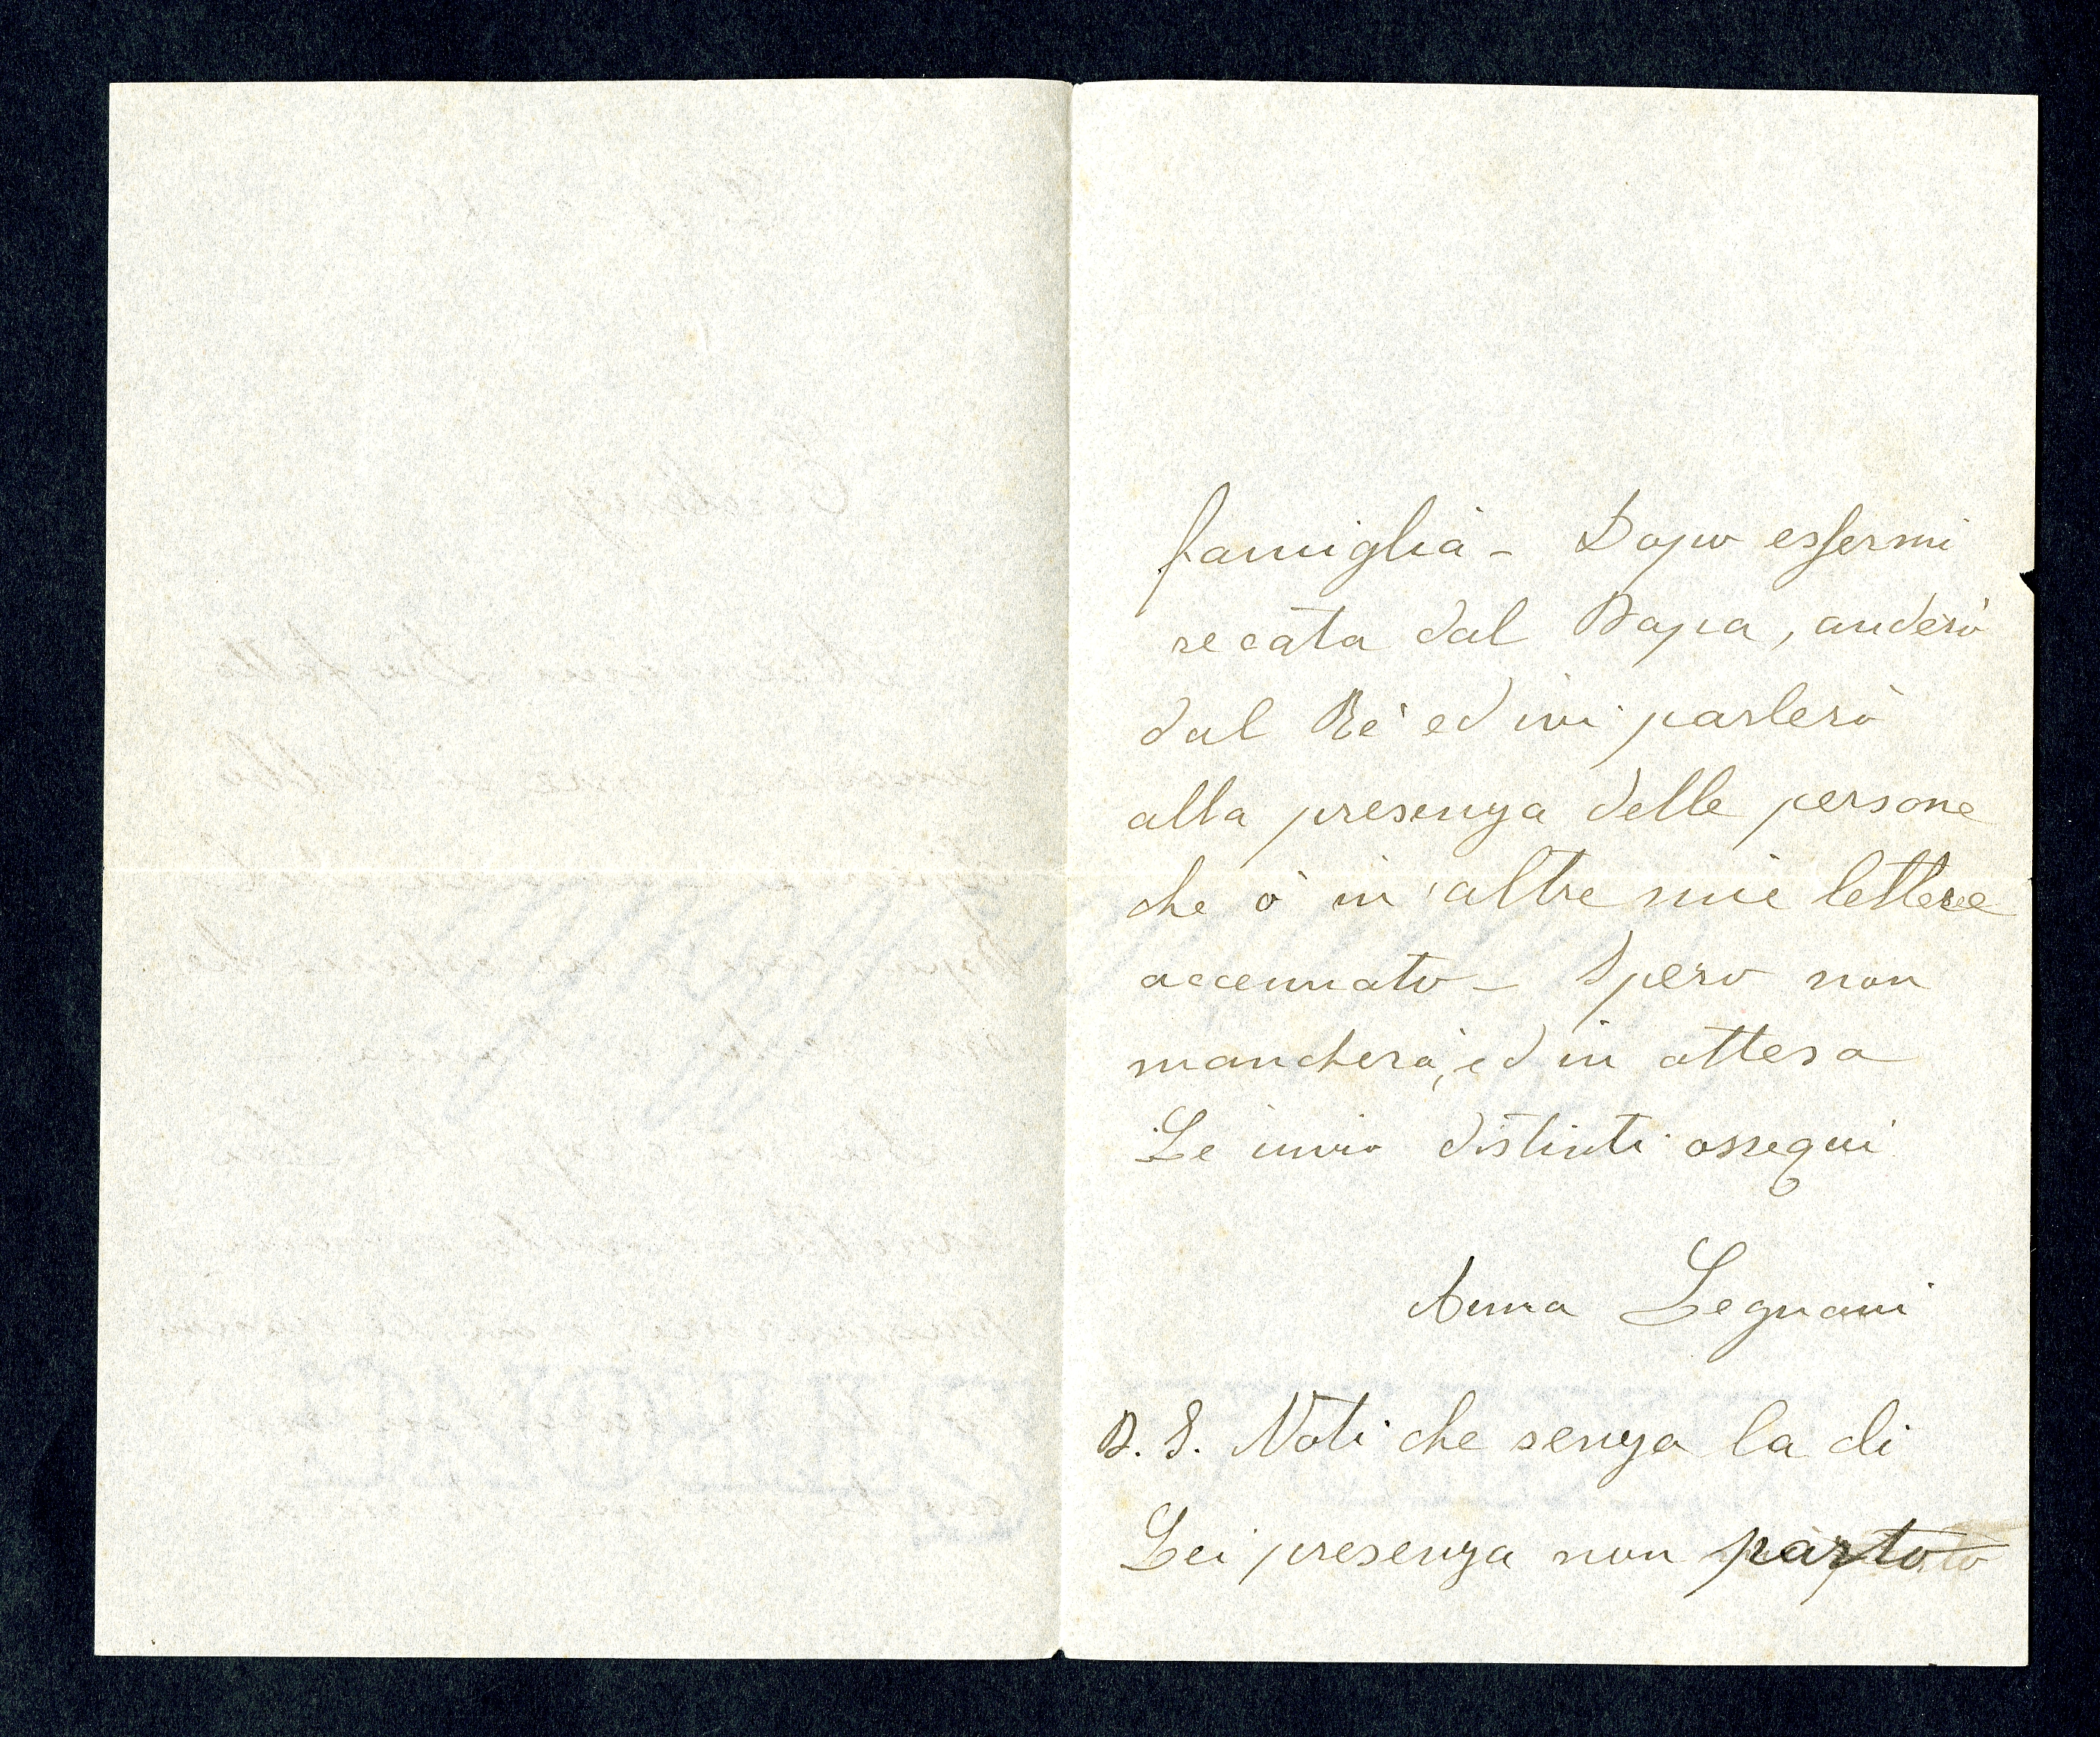 famiglia - Dopo essermi
recata dal Papa, anderò
dal Rè ed ivi parlerò
alla presenza delle persone
che ò in altre mie lettere
accennato - Spero non
mancherà, ed in attesa
Le invio distinti ossequi
Anna Legnani
P. S. Noti che senza la di
Lei presenza non parto